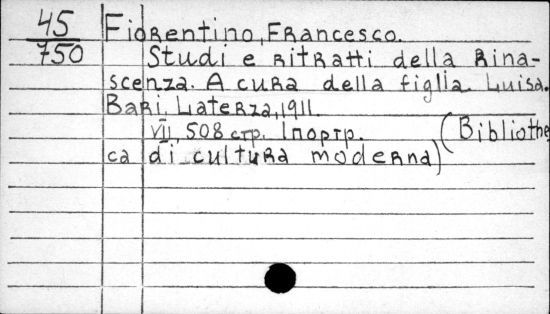 45
750
Fiorentino, Francesco.
Studi e ritratti della Rina-
scenza. A cura della figlia Luisa.
Bari, Laterza, 1911.
VII, 508 стр. 1 портр. (Bibliothe
ca di cultura moderna)